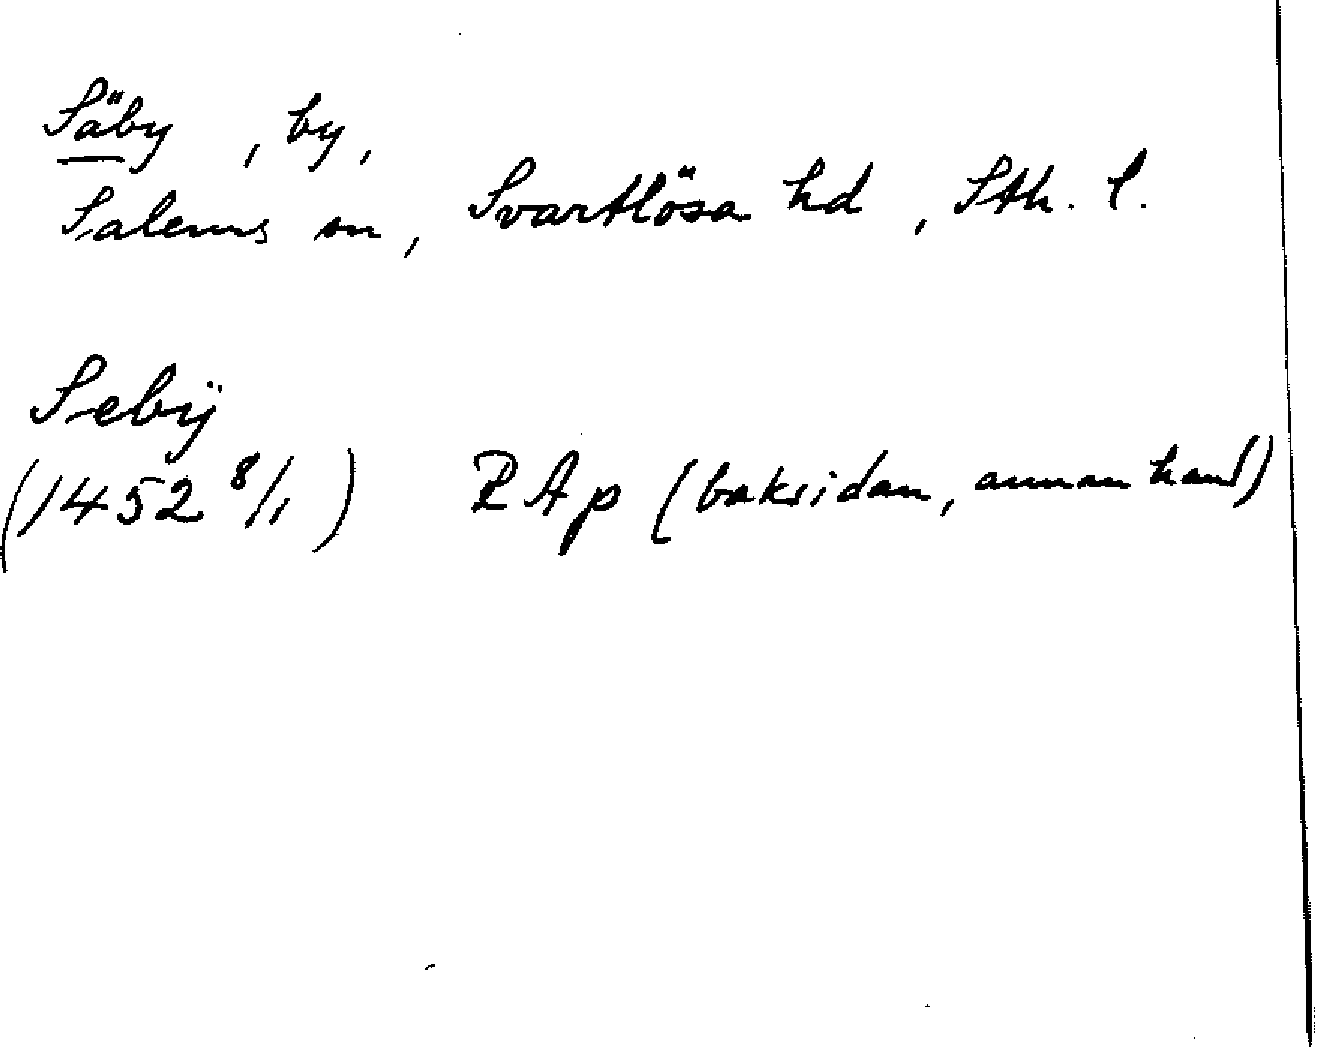 Säby, by,
Salems sn, Svartlösa hd, Sth. l.
Sebÿ
(1452 8/1) RAp (baksidan, annan hand)